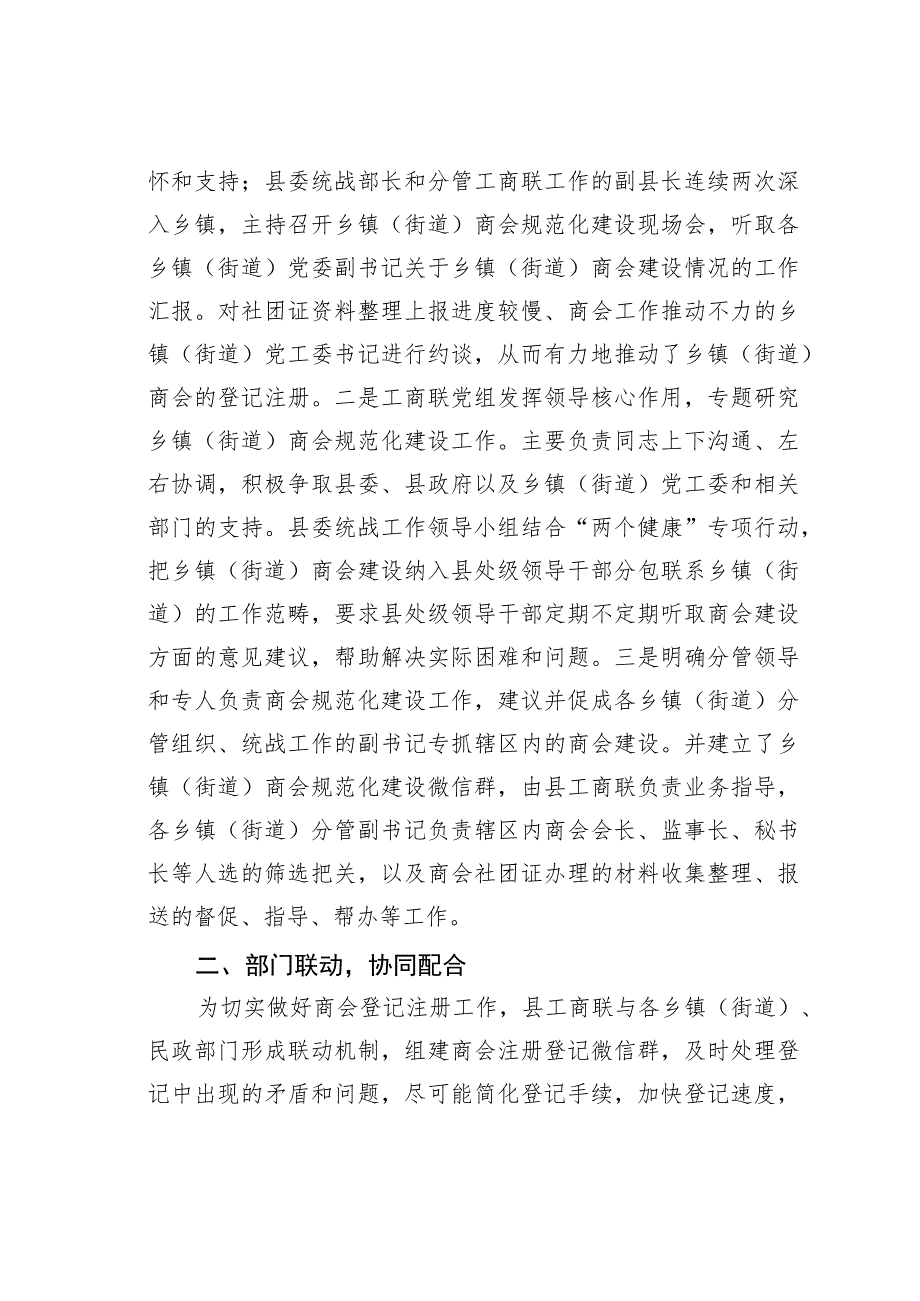 怀和支持；县委统战部长和分管工商联工作的副县长连续两次深
入乡镇，主持召开乡镇（街道）商会规范化建设现场会，听取各
乡镇（街道）党委副书记关于乡镇（街道）商会建设情况的工作
汇报。对社团证资料整理上报进度较慢、商会工作推动不力的乡
镇（街道）党工委书记进行约谈，从而有力地推动了乡镇（街道）
商会的登记注册。二是工商联党组发挥领导核心作用，专题研究
乡镇（街道）商会规范化建设工作。主要负责同志上下沟通、左
右协调，积极争取县委、县政府以及乡镇（街道）党工委和相关
部门的支持。县委统战工作领导小组结合“两个健康”专项行动，
把乡镇（街道）商会建设纳入县处级领导干部分包联系乡镇（街
道）的工作范畴，要求县处级领导干部定期不定期听取商会建设
方面的意见建议，帮助解决实际困难和问题。三是明确分管领导
和专人负责商会规范化建设工作，建议并促成各乡镇（街道）分
管组织、统战工作的副书记专抓辖区内的商会建设。并建立了乡
镇（街道）商会规范化建设微信群，由县工商联负责业务指导，
各乡镇（街道）分管副书记负责辖区内商会会长、监事长、秘书
长等人选的筛选把关，以及商会社团证办理的材料收集整理、报
送的督促、指导、帮办等工作。
二、部门联动，协同配合
为切实做好商会登记注册工作，县工商联与各乡镇（街道）、
民政部门形成联动机制，组建商会注册登记微信群，及时处理登
记中出现的矛盾和问题，尽可能简化登记手续，加快登记速度，